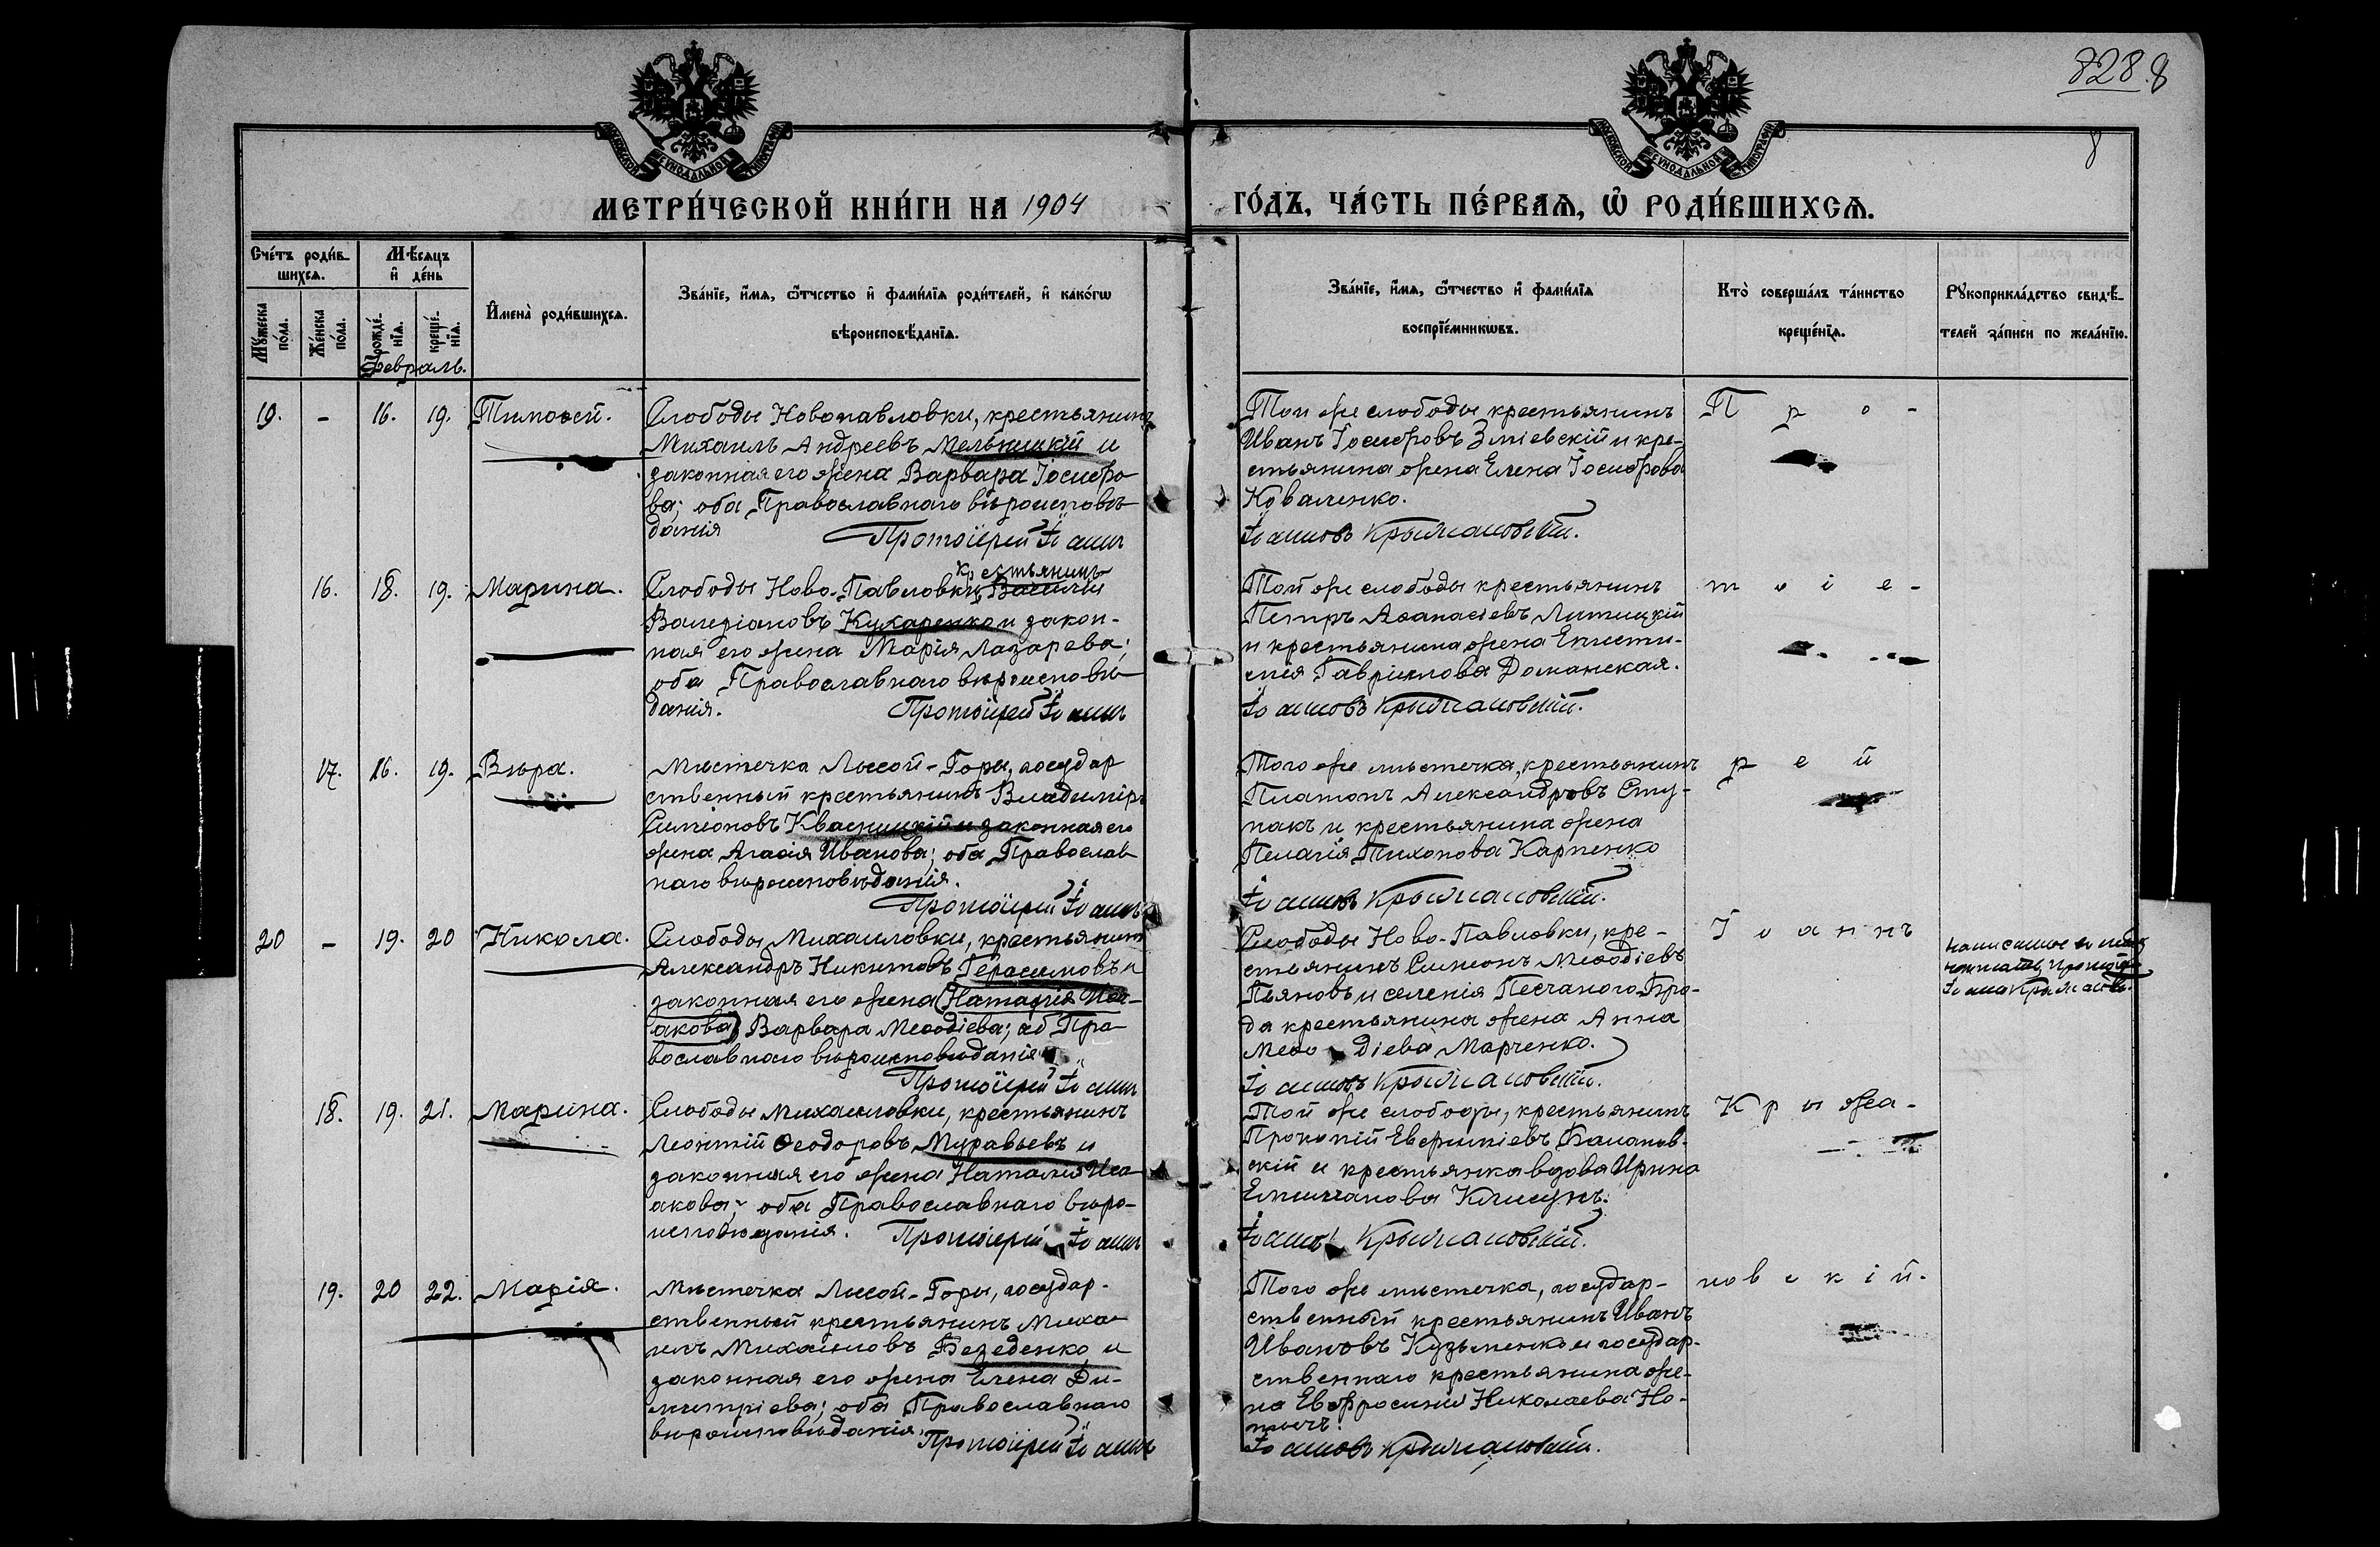 828.8
8
МОСКОВСКОЙ СѴНОДАЛЬНОЙ ТИПОГРАФІИ
МОСКОВСКОЙ СѴНОДАЛЬНОЙ ТИПОГРАФІИ
МЕТРИ́ЧЕСКОЙ КНИ́ГИ НА 1904
ГО́ДЪ, ЧА́СТЬ ПЕ́РВАѦ, Ѡ҆ РОДИ́ВШИХСѦ.
Сче́тъ роди́в-
шихсѧ.
Мѣ́сѧцъ
и҆ де́нь
Му́жеска по́ла.
Же́нска по́ла.
Рожде́-нїѧ.
креще́-нїѧ.
И҆мена̀ роди́вшихсѧ.
Зва́нїе, и҆́мѧ, ѻ҆́тчество и҆ фами́лїѧ роди́телей, и҆ како́гѡ
вѣроисповѣ́данїѧ.
Зва́нїе, и҆́мѧ, ѻ҆́тчество и҆ фами́лїѧ
воспрїе́мникѡвъ.
Кто̀ соверша́лъ та́инство
креще́нїѧ.
Рꙋкоприкла́дство свидѣ́-
телей за́писи по жела́нїю.
Февраль.
19. - 16. 19. Тимоѳей.
Слободы Новопавловки, крестьянинъ
Михаилъ Андреевъ Мельницкій и
законная его жена Варвара Іосифо-
ва; оба Православнаго вѣроисповѣ-
данія
Протоіерей Іоаннъ
Той же слободы крестьянинъ
Иванъ Іосифовъ Зміевскій и кре-
стьянина жена Елена Іосифова
Коваленко.
Іоанновъ Крыжановскій.
П р о -
16. 18. 19. Марина.
крестьянинъ
Слободы Ново-Павловки, Василій
Валеріановъ Кухаренко и закон-
ная его жена Марія Лазарева;
оба Православнаго вѣроисповѣ-
данія.
Протоіерей Іоаннъ
Той же слободы крестьянинъ
Петръ Аѳанасіевъ
и крестьянина жена Еписти-
мія Гавриилова Доманская.
Іоанновъ Крыжановскій.
т о і е -
17. 16. 19. Вѣра.
Мѣстечка Лысой-Горы, государ
ственный крестьянинъ Владиміръ
Симеоновъ Квасницкій и законная его
жена Агаѳія Иванова; оба Православ
наго вѣроисповѣданія.
Протоіерей Іоаннъ
Того же мѣстечка, крестьянинъ
Платонъ Александровъ Сту-
пакъ и крестьянина жена
Пелагія Тихонова Карпенко
Іоанновъ Крыжановскій.
р е й
20 - 19. 20 Никола.
Слободы Михаиловки, крестьянинъ
Александръ Никитовъ Герасимовъ и
законная его жена (Наталія Иса-
акова) Варвара Меѳодіева; об Пра-
вославнаго вѣроисповѣданія
Протоіерей Іоаннъ
Слободы Ново-Павловки, кре-
стьянинъ Симеонъ Меѳодіевъ
Пьяновъ и селенія Песчанаго Бро-
да крестьянина жена Анна
Меѳо дiева Марченко.
Іоанновъ Крыжановскій.
І о а н н ъ
18. 19. 21. Марина.
Слободы Михаиловки, крестьянинъ
Леонтій Ѳеодоровъ Муравьевъ и
законная его жена Наталія Иса-
акова; оба Православнаго вѣро-
исповѣданія. Протоіерей Іоаннъ
Той же слободы, крестьянинъ
Прокопій Евфиміевъ Баланов-
скій и крестьянка вдова Ирина
Емилianова Клисунъ.
Іоаннов Крыжановскій.
К р ы жа -
19. 20 22. Марія.
Мѣстечка Лысой-Горы, государ-
ственный крестьянинъ Миха-
илъ Михаиловъ Безеденко и
законная его жена Елена Ди-
митріева; оба Православнаго
вѣроисповѣданія.
Протоіерей Іоаннъ
Того же мѣстечка, государ-
ственный крестьянинъ Иванъ
Ивановъ Кузьменко и государ-
ственнаго крестьянина же-
на Евфросинія Николаева Но-
Іоанновъ Крыжановскій.
нов с к і й.